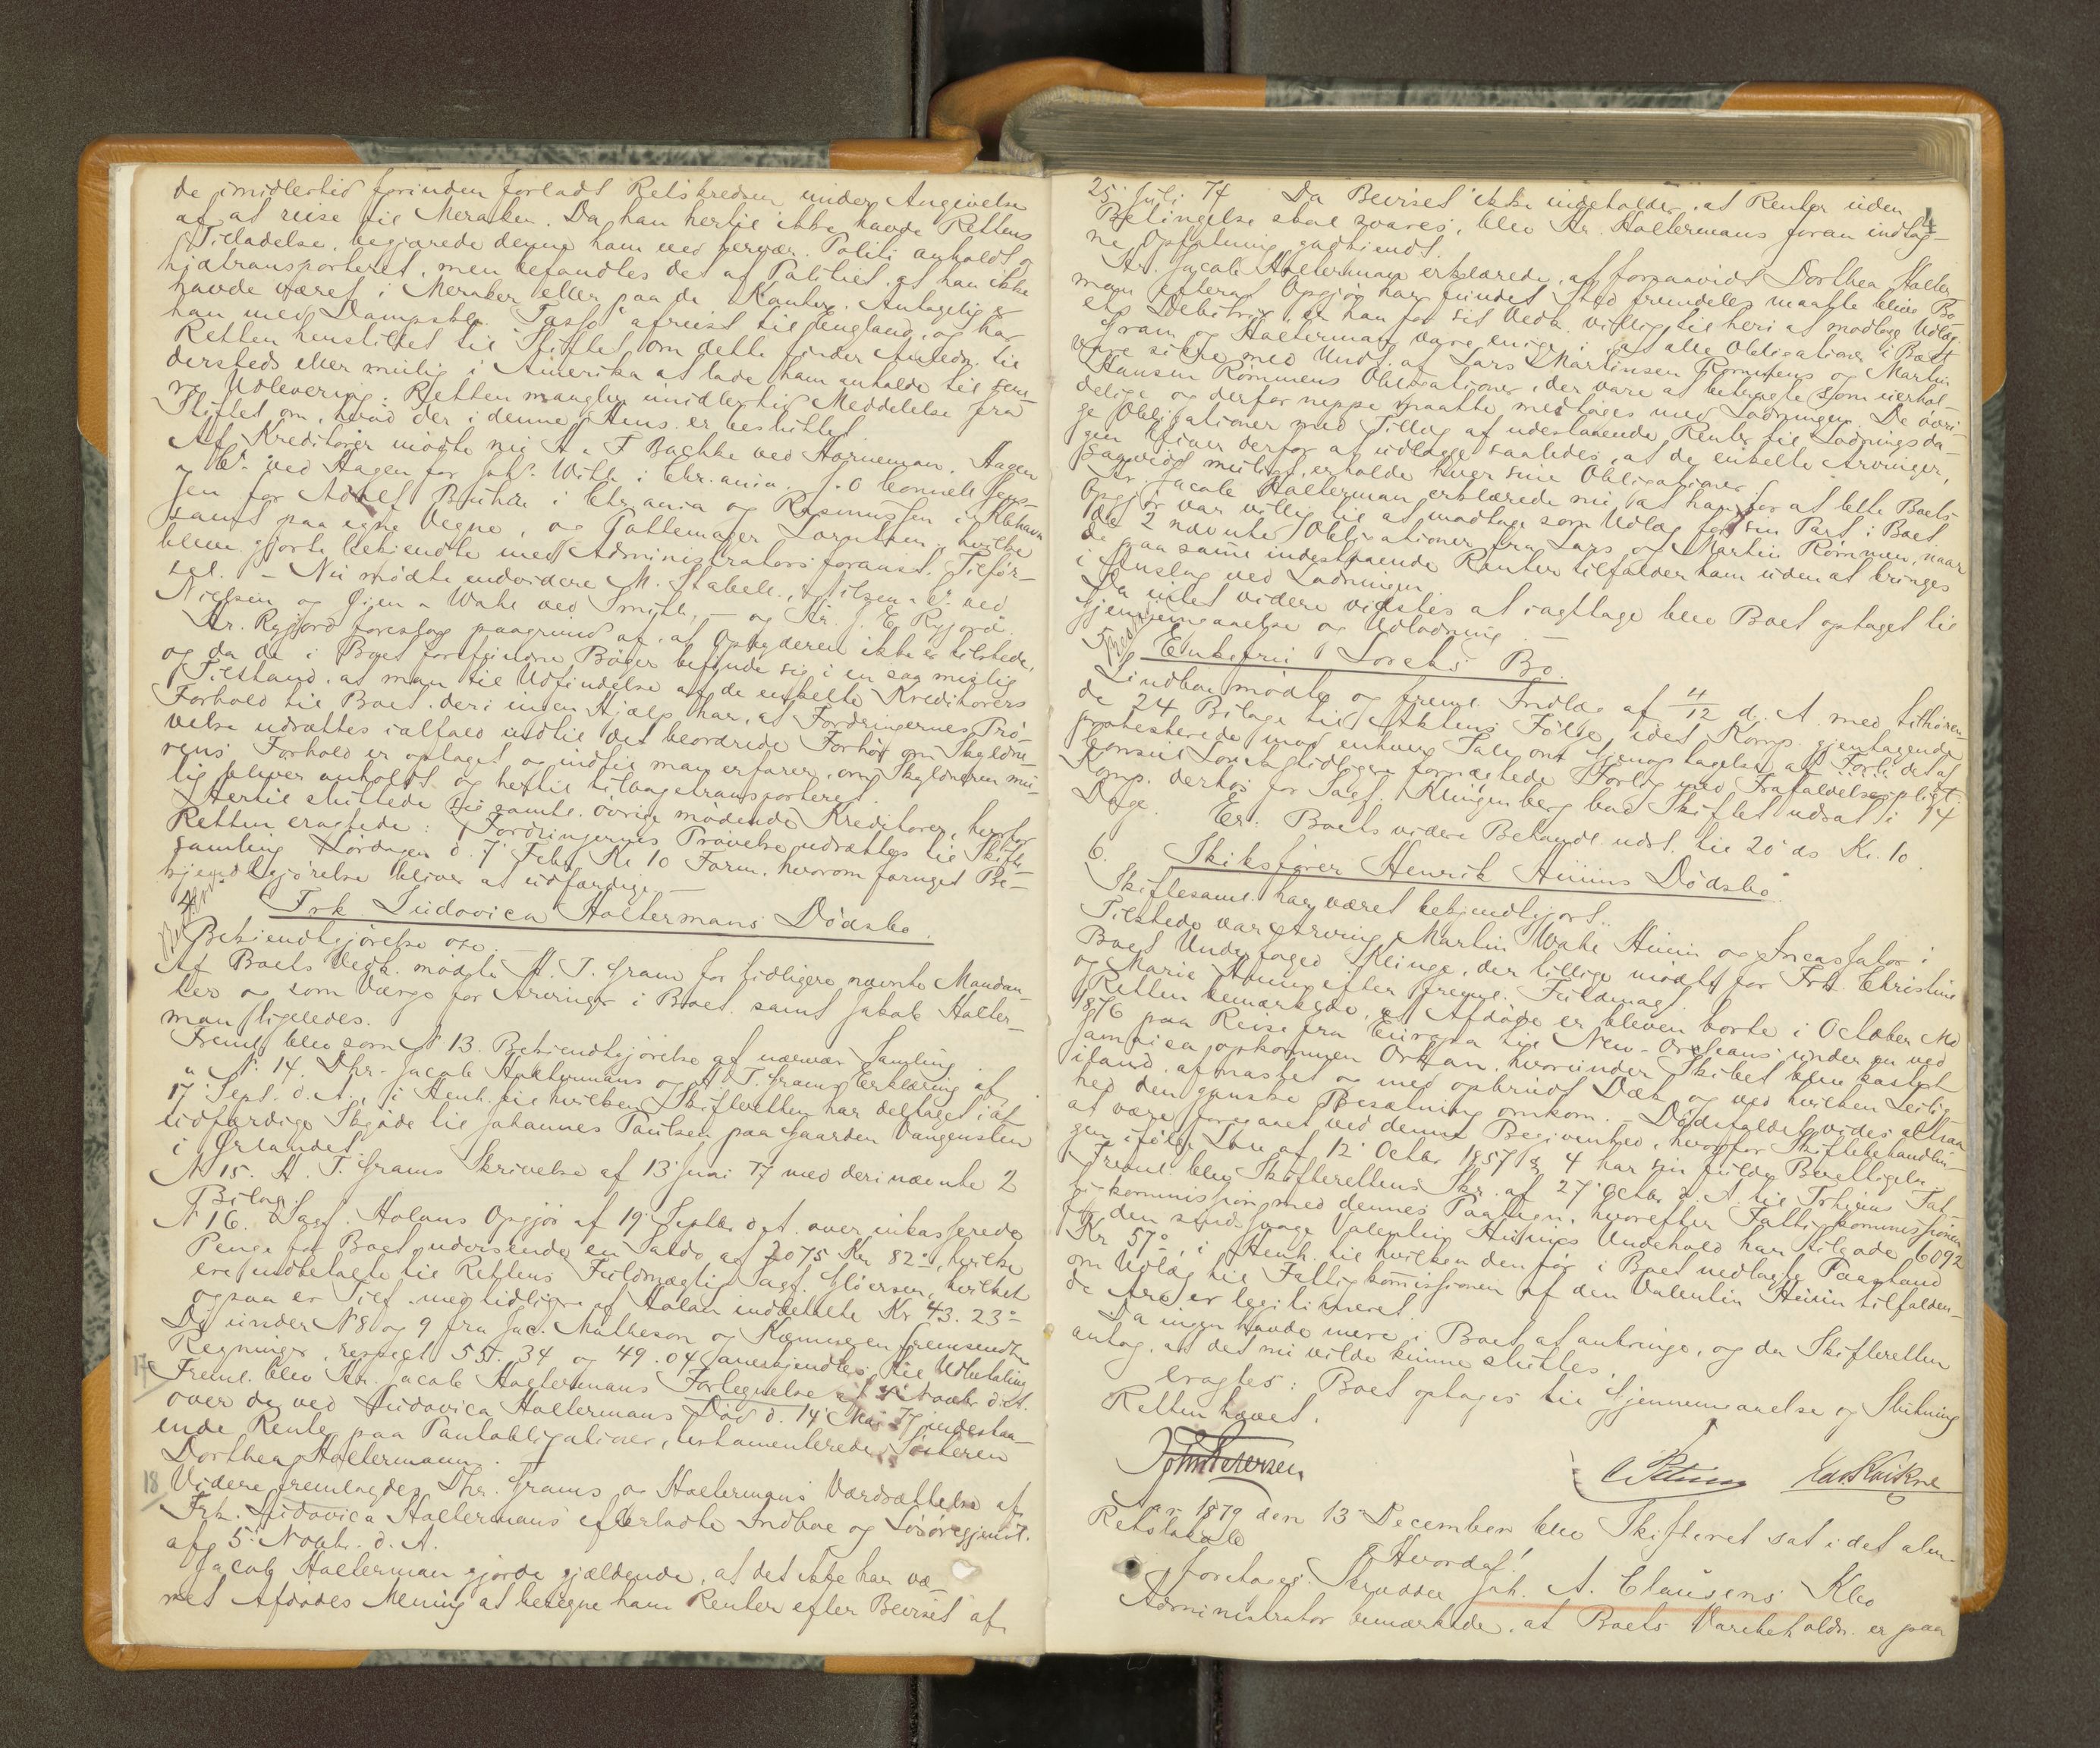 de imidlertid forinden forladt Retskredsen under Angivelse
af at reise til Meraker. Da han hertil ikke havde Rettens
Tilladelse, begjærede denne ham ved vervær. Politi anholdt og
hjætransporteret, men befandtes det af Politiet, at han ikke
havde været i Meraker eller paa de Kanter. Antagelig er
han med Dampsk. "Tasso" afreist til England, og har
Retten henstillet til Stiftet, om dette finder Anledn. til
dersteds eller mulig i Amerika at lade ham anholde til sene-
re Udlevering: Retten mangler imidlertid Meddelelse fra
Stiftet om, hvad der i denne Hens. er besluttet.
Af Kreditorer mødte nu H. & F. Bachke ved Horneman, Hagen
& Co. ved Hagen for Jak. Wilh. i Chr.ania. J. O. Cornel Jens-
sen for Adolf Buhre i Chr.ania og Rasmussen i Kbhavn
samt paa egne Vegne, og Garvemager Lorntsen, hvilke
bleve gjorte bekjendte med Administrators foranst. Tilfør-
sel. – Nu mødte endvidere M. Stabell, Nilsen & Co. ved
Nielsen og Øien & Wahl ved Smith, – og Hr. J. E. Rygjord.
Hr. Rygjord foreslog paagrund af, at Opbyderen ikke er tilstede,
og da de i Boet forefundne Bøger befinde sig i en saa mislig
Tilstand, at man til Udfindelse af de enkelte Kreditorers
Forhold til Boet, deri ingen Hjælp har, at Fordringernes Prø-
velse udsættes ialfald indtil det beordrede Forhør om Skyldne-
rens Forhold er optaget og indtil man erfarer, om Skyldneren mu-
lig bliver anholdt og hertil tilbagetransporteret.
Hertil sluttede sig samtl. øvrige mødende Kreditorer, hvorfor
Retten eragtede: Fordringernes Prøvelse udsættes til Skifte-
samling Lørdagen d. 7 Febr. Kl. 10 Form., hvorom fornyet Be-
kjendtgjørelse bliver at udfærdige. –
4. Frk. Ludovica Holtermans Dødsbo.
Bekjendtgjørelse osv. –
Af Boets Vedk. mødte H. T. Gram for tidligere nævnte Mandan-
ter og som Værge for Arvinger i Boet, samt Jakob Holter-
man ligeledes.
Freml. blev som No 13. Bekjendtgjørelse af nærvær. Samling
" No 14. Dhr. Jacob Holtermans og H. T. Grams Erklæring af
17 Sept. d. A., i Henh. til hvilken Skifteretten har deltaget i at
udfærdige Skjøde til Johannes Paulsen paa Gaarden Vangensten
i Ørlandet.
No 15. H. T. Grams Skrivelse af 13 Juni 77 med deri nævnte 2
Bilag.
No 16. Sagf. Holans Opgjør af 19 Septbr. d. A. over inkasserede
Penge for Boet, udvisende en Saldo af 2075 Kr. 82 ø, hvilke
ere indbetalte til Rettens Fuldmægtig Sagf. Gløersen, hvilket
ogsaa er Tilf. med tidligere af Holan indbetalte Kr. 43. 23 ø
De under No 8 og 9 fra Jac. Matheson og Kæmneren fremsendte
Regninger, respect. 55. 34 og 49. 04 anerkjendtes til Udbetaling.
17 Freml. blev Hr. Jacob Holtermans Fortegnelse af Novbr. d. A.
over de ved Ludovica Holtermans Død d. 14 Mai 77 indestaa-
ende Renter paa Pantobligationer, testamenterede Søsteren
Dorthea Holtermann.
18 Videre fremlagdes Dhr. Grams og Holtermans Værdsættelse af
Frk. Ludovica Holtermans efterladte Indboe og Løsøregjenst.
af 5 Novbr. d. A.
Jacob Holterman gjorde gjældende, at det ikke har væ-
ret Afdødes Mening at beregne ham Renter efter Beviset af
4
25 Juli 74. Da Beviset ikke indeholder, at Renter uden
Betingelse skal svares, blev Hr. Holtermans foran indtag-
ne Opfatning godkjendt.
Hr. Jacob Holterman erklærede, at forsaavidt Dorthea Holter-
man efterat Opgjør har fundet Sted fremdeles maatte blive Bo-
ets Debitrix, er han for sit Vedk. villig til heri at modtage Udlæg.
Gram og Holterman vare enige i, at alle Obligationer i Boet
vare sikre med Undt. af Lars Martinsen Rømmens og Martin
Hansen Rømmens Obligationer, der vare at betragte som uerhol-
delige og derfor neppe maatte medtages ved Lodningen. De øvri-
ge Obligationer med Tillæg af udestaaende Renter til Lodningsda-
gen bliver derfor at udlægge saaledes, at de enkelte Arvinger,
saavidt muligt, erholde hver sine Obligationer.
Hr. Jacob Holterman erklærede nu, at han for at lette Boets
Opgjør var villig til at modtage som Udlæg for sin Part i Boet
de 2 nævnte Obligationer fra Lars og Martin Rømmen, naar
de paa samme indestaaende Renter tilfalder ham uden at bringes
i Anslag ved Lodningen.
Da intet videre vidstes at iagttage blev Boet optaget til
Gjennemgaaelse og Udlodning. –
5. Enkefru Lorcks Bo.
Lindboe mødte og freml. Indlæg af 4/12 d. A. med tilhøren-
de 24 Bilage til Aktens Følge, idet Komp. gjentagende
protesterede mod enhver Tale om Gjenoptagelse af Forl. det af
Consul Lorck tidligere fornægtede Forlig ved Frafaldelsespligt.
Komp. derhos for Sagf. Klingenberg bad Skiftet udsat i 14
Dage. Er. Boets videre Behandl. udst. til 20 ds. Kl. 10.
6. Skibsfører Henrik Huuns Dødsbo.
Skiftesaml. har været bekjendtgjort.
Tilstede var Arving Martin Wahl Huun og Incassator i
Boet Underfoged Klinge, der tillige mødte for Frk. Christine
og Marie Huun efter freml. Fuldmagt.
Retten bemærkede, at Afdøde er bleven borte i October Md.
1876 paa Reise fra Europa til New-Orleans under en ved
Jamaica opkommen Orkan, hvorunder Skibet blev kastet
iland, afmastet og med opbrudt Dæk og ved hvilken Leilig-
hed den ganske Besætning omkom. – Dødsfaldet vides altsaa
at være foregaaet ved denne Begivenhed, hvorfor Skiftebehandlin-
gen ifølge Lov af 12 Octbr. 1857 § 4 har sin fulde Berettigelse.
Freml. blev Skifterettens Skr. af 27 Octbr. d. A. til Trhjems Fat-
tigkommission med dennes Paategn., hvorefter Fattigkommissionen
for den sindssvage Valentin Huuns Underhold har tilgode 6092
Kr. 57 ø, i Henh. til hvilken den før i Boet nedlagte Paastand
om Udlæg til Fattigkommissionen af den Valentin Huun tilfalden-
de Arv er legitimeret.
Da ingen havde mere i Boet at anbringe, og da Skifteretten
antog, at det nu vilde kunne sluttes,
eragtes: Boet optages til Gjennemgaaelse og Slutning
Retten hævet.
John Petersen
Ed. Kvikne
Ar 1879 den 13 December blev Skifteret sat i det alm.
Retslokale
Hvorda!
foretoges: Skrædder Joh. A. Clausens Kbo
Administrator bemærkede, at Boets Varebeholdn. er paa